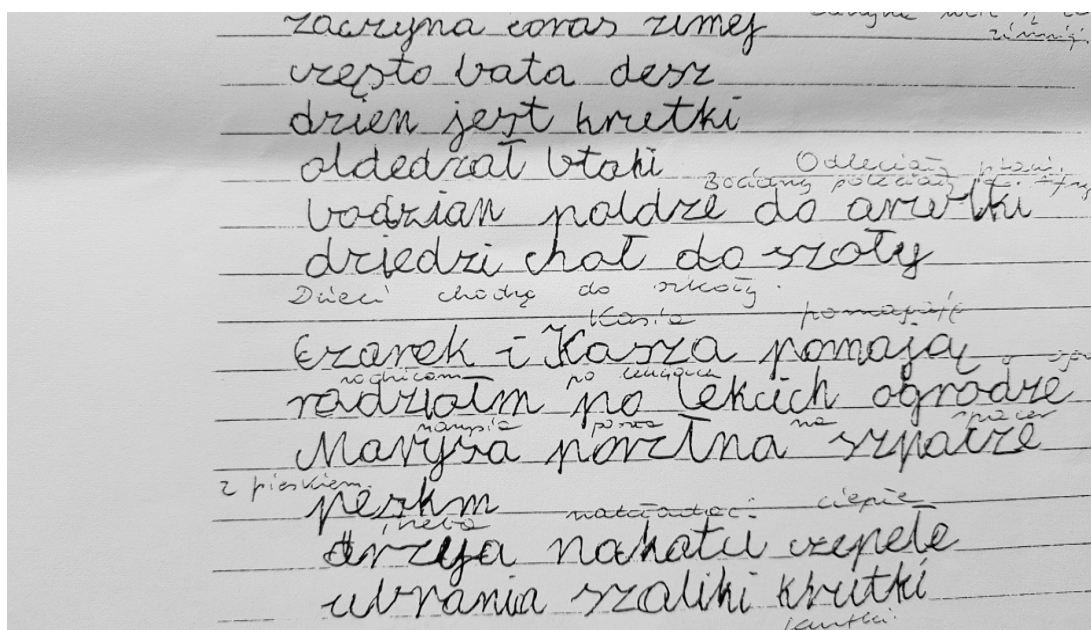 zaczyna coras zimej
zimniej.
często bata desz
dzien jest kretki
Odleciały ptaki.
oldedzał btaki
Bociany poleciały
bodzian poldze do arwtki
dziedzi chał do szoły
Dzieci chodzą do szkoły.
Kasia pomagają
Czarek i Kasza pomają
rodzicom po lekcjach
radziolm po lekcich ogrodze
Marysia poszła na spacer
Marysa porzłna szpacze
z pieskiem.
peskm
trzeba nakładać ciepłe
drzyja nakatu czepełe
ubrania szaliki krutki
kurtki.